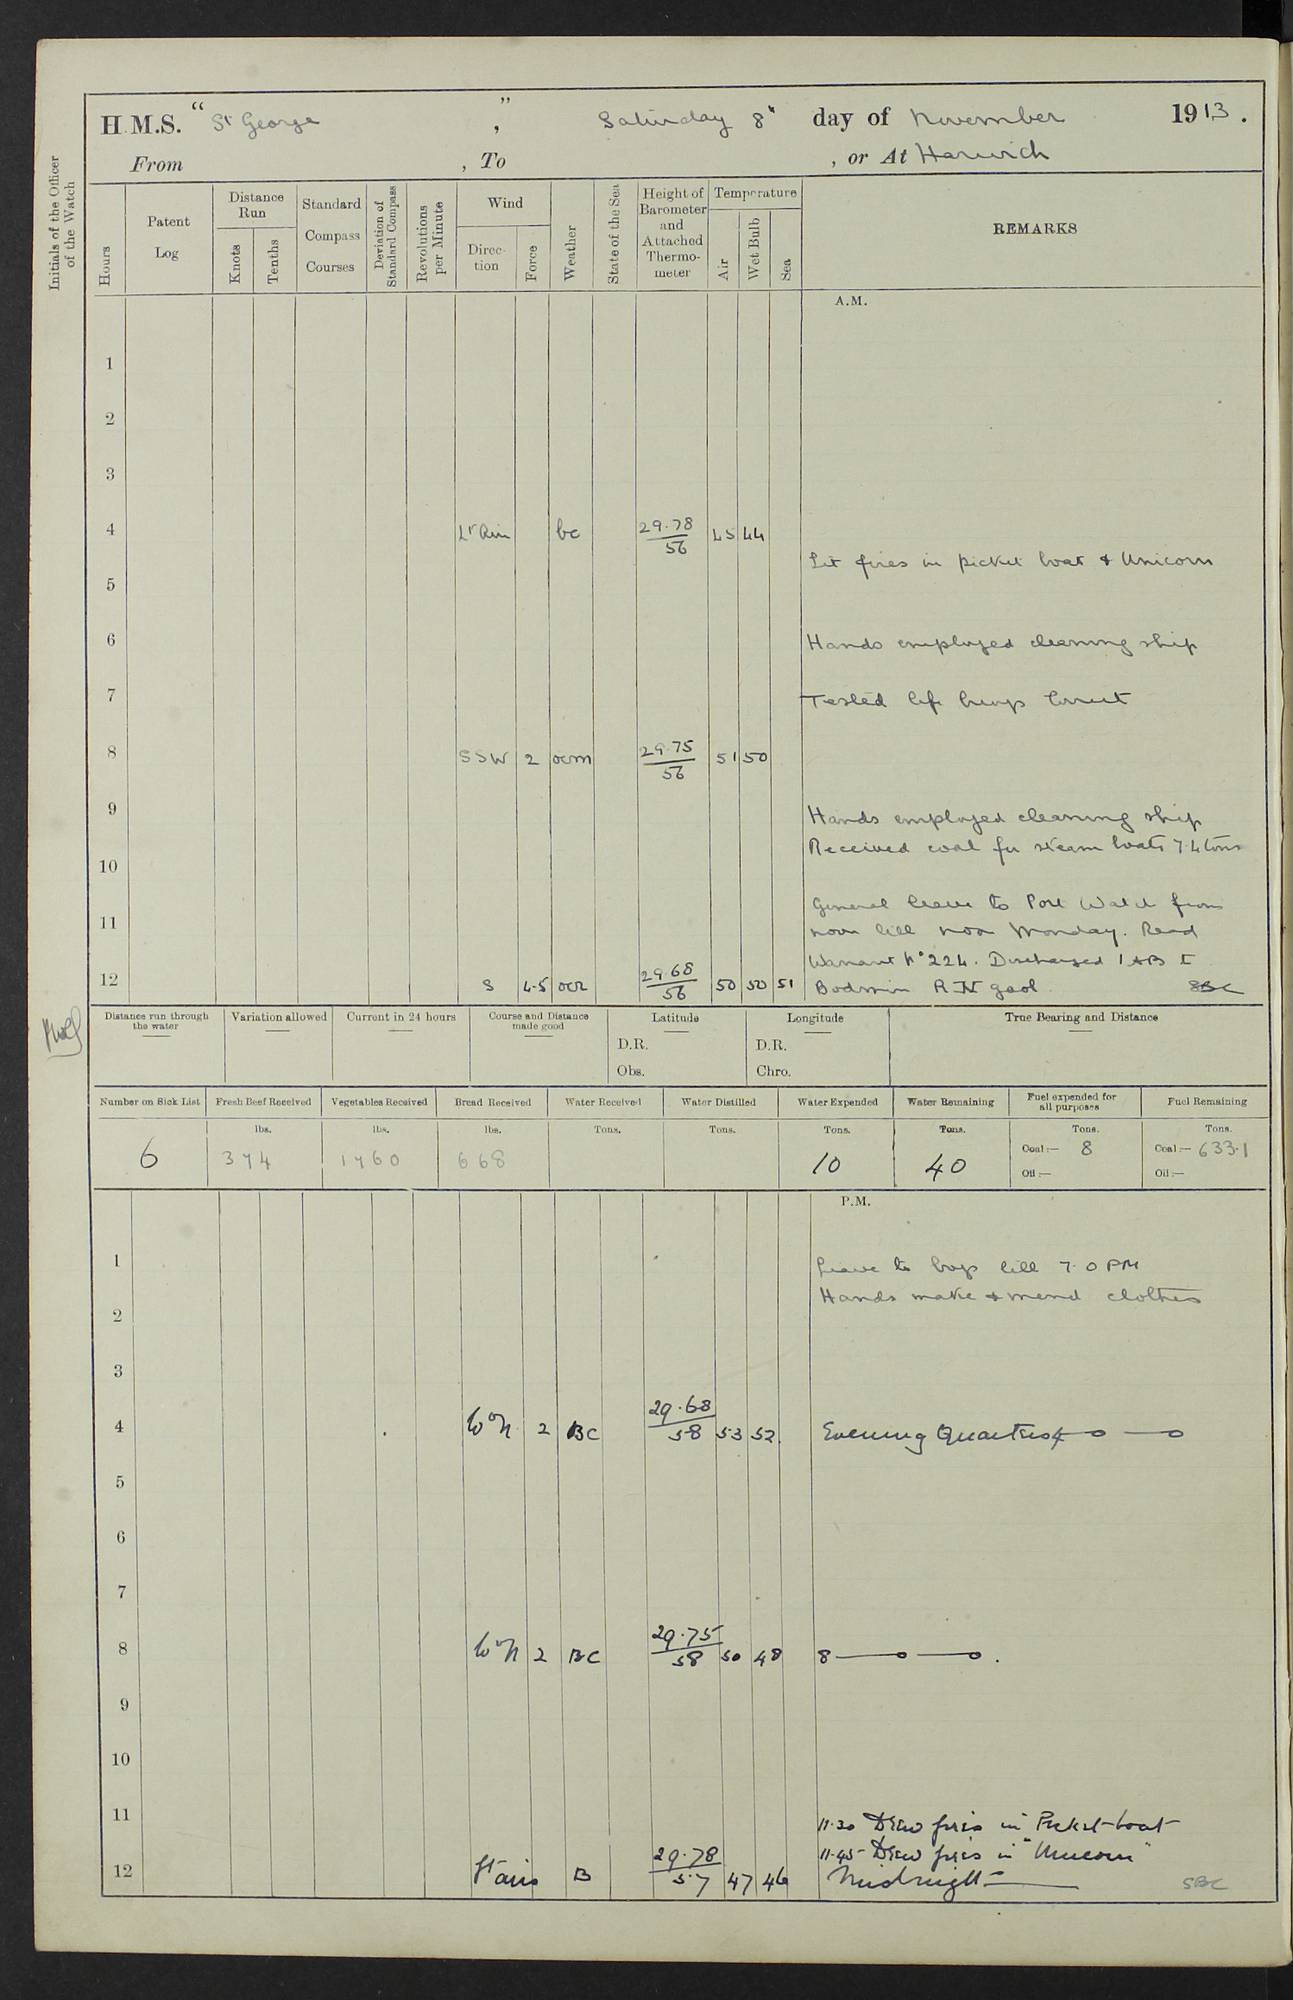 H.M.S. "St George", Saturday 8th day of November 1913.
From , To , or At Harwich
Initials of the Officer of the Watch
Hours
Patent Log
Distance Run
Knots
Tenths
Standard Compass Courses
Deviation of Standard Compass
Revolutions per Minute
Wind
Direction
Force
Weather
State of the Sea
Height of Barometer and Attached Thermometer
Temperature
Air
Wet Bulb
Sea
REMARKS
A.M.
1
2
3
4 Lt Airs bc 29.78/56 45 44
Lit fires in picket boat & Unicorn
5
6 Hands employed cleaning ship
7 Tested life buoys Correct
8 SSW 2 ocm 29.75/56 51 50
9 Hands employed cleaning ship
Received coal for steam boats 7.4 tons
10
General leave to Port Watch from
11 noon till noon Monday. Read
Warrant No 224. Discharged 1 AB to
12 S 4-5 ocr 29.68/56 50 50 51 Bodmin R N gaol. SBC
Distance run through the water
Variation allowed
Current in 24 hours
Course and Distance made good
Latitude
D.R.
Obs.
Longitude
D.R.
Chro.
True Bearing and Distance
Number on Sick List
6
Fresh Beef Received
lbs.
374
Vegetables Received
lbs.
1760
Bread Received
lbs.
668
Water Received
Tons.
Water Distilled
Tons.
Water Expended
Tons.
10
Water Remaining
Tons.
40
Fuel expended for all purposes
Tons.
Coal:— 8
Oil:—
Fuel Remaining
Tons.
Coal:— 633.1
Oil:—
P.M.
1 Leave to boys till 7.0 PM
Hands make & mend clothes
2
3
4 WoN 2 BC 29.68/58 53 52 Evening Quarters
5
6
7
8 WoN 2 BC 29.75/58 50 48 8
9
10
11 11.30 Drew fires in Picket-boat
11.45 Drew fires in "Unicorn"
12 Lt airs B 29.78/57 47 46 Midnight SBC